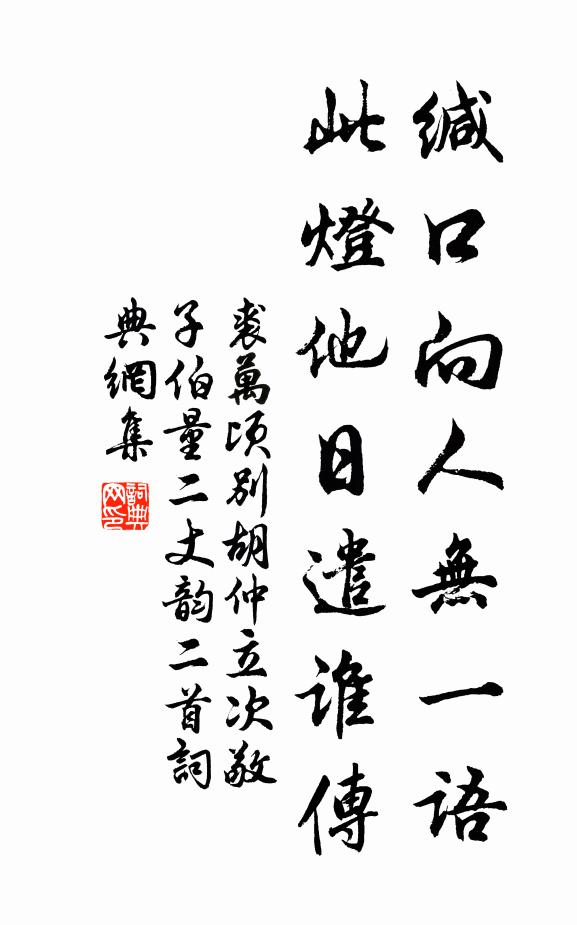 緘口向人無一语
此燈他日遣誰傳
裘萬頃别胡仲立次敬
子伯量二丈韵二首詞
典網集
詞典
网印